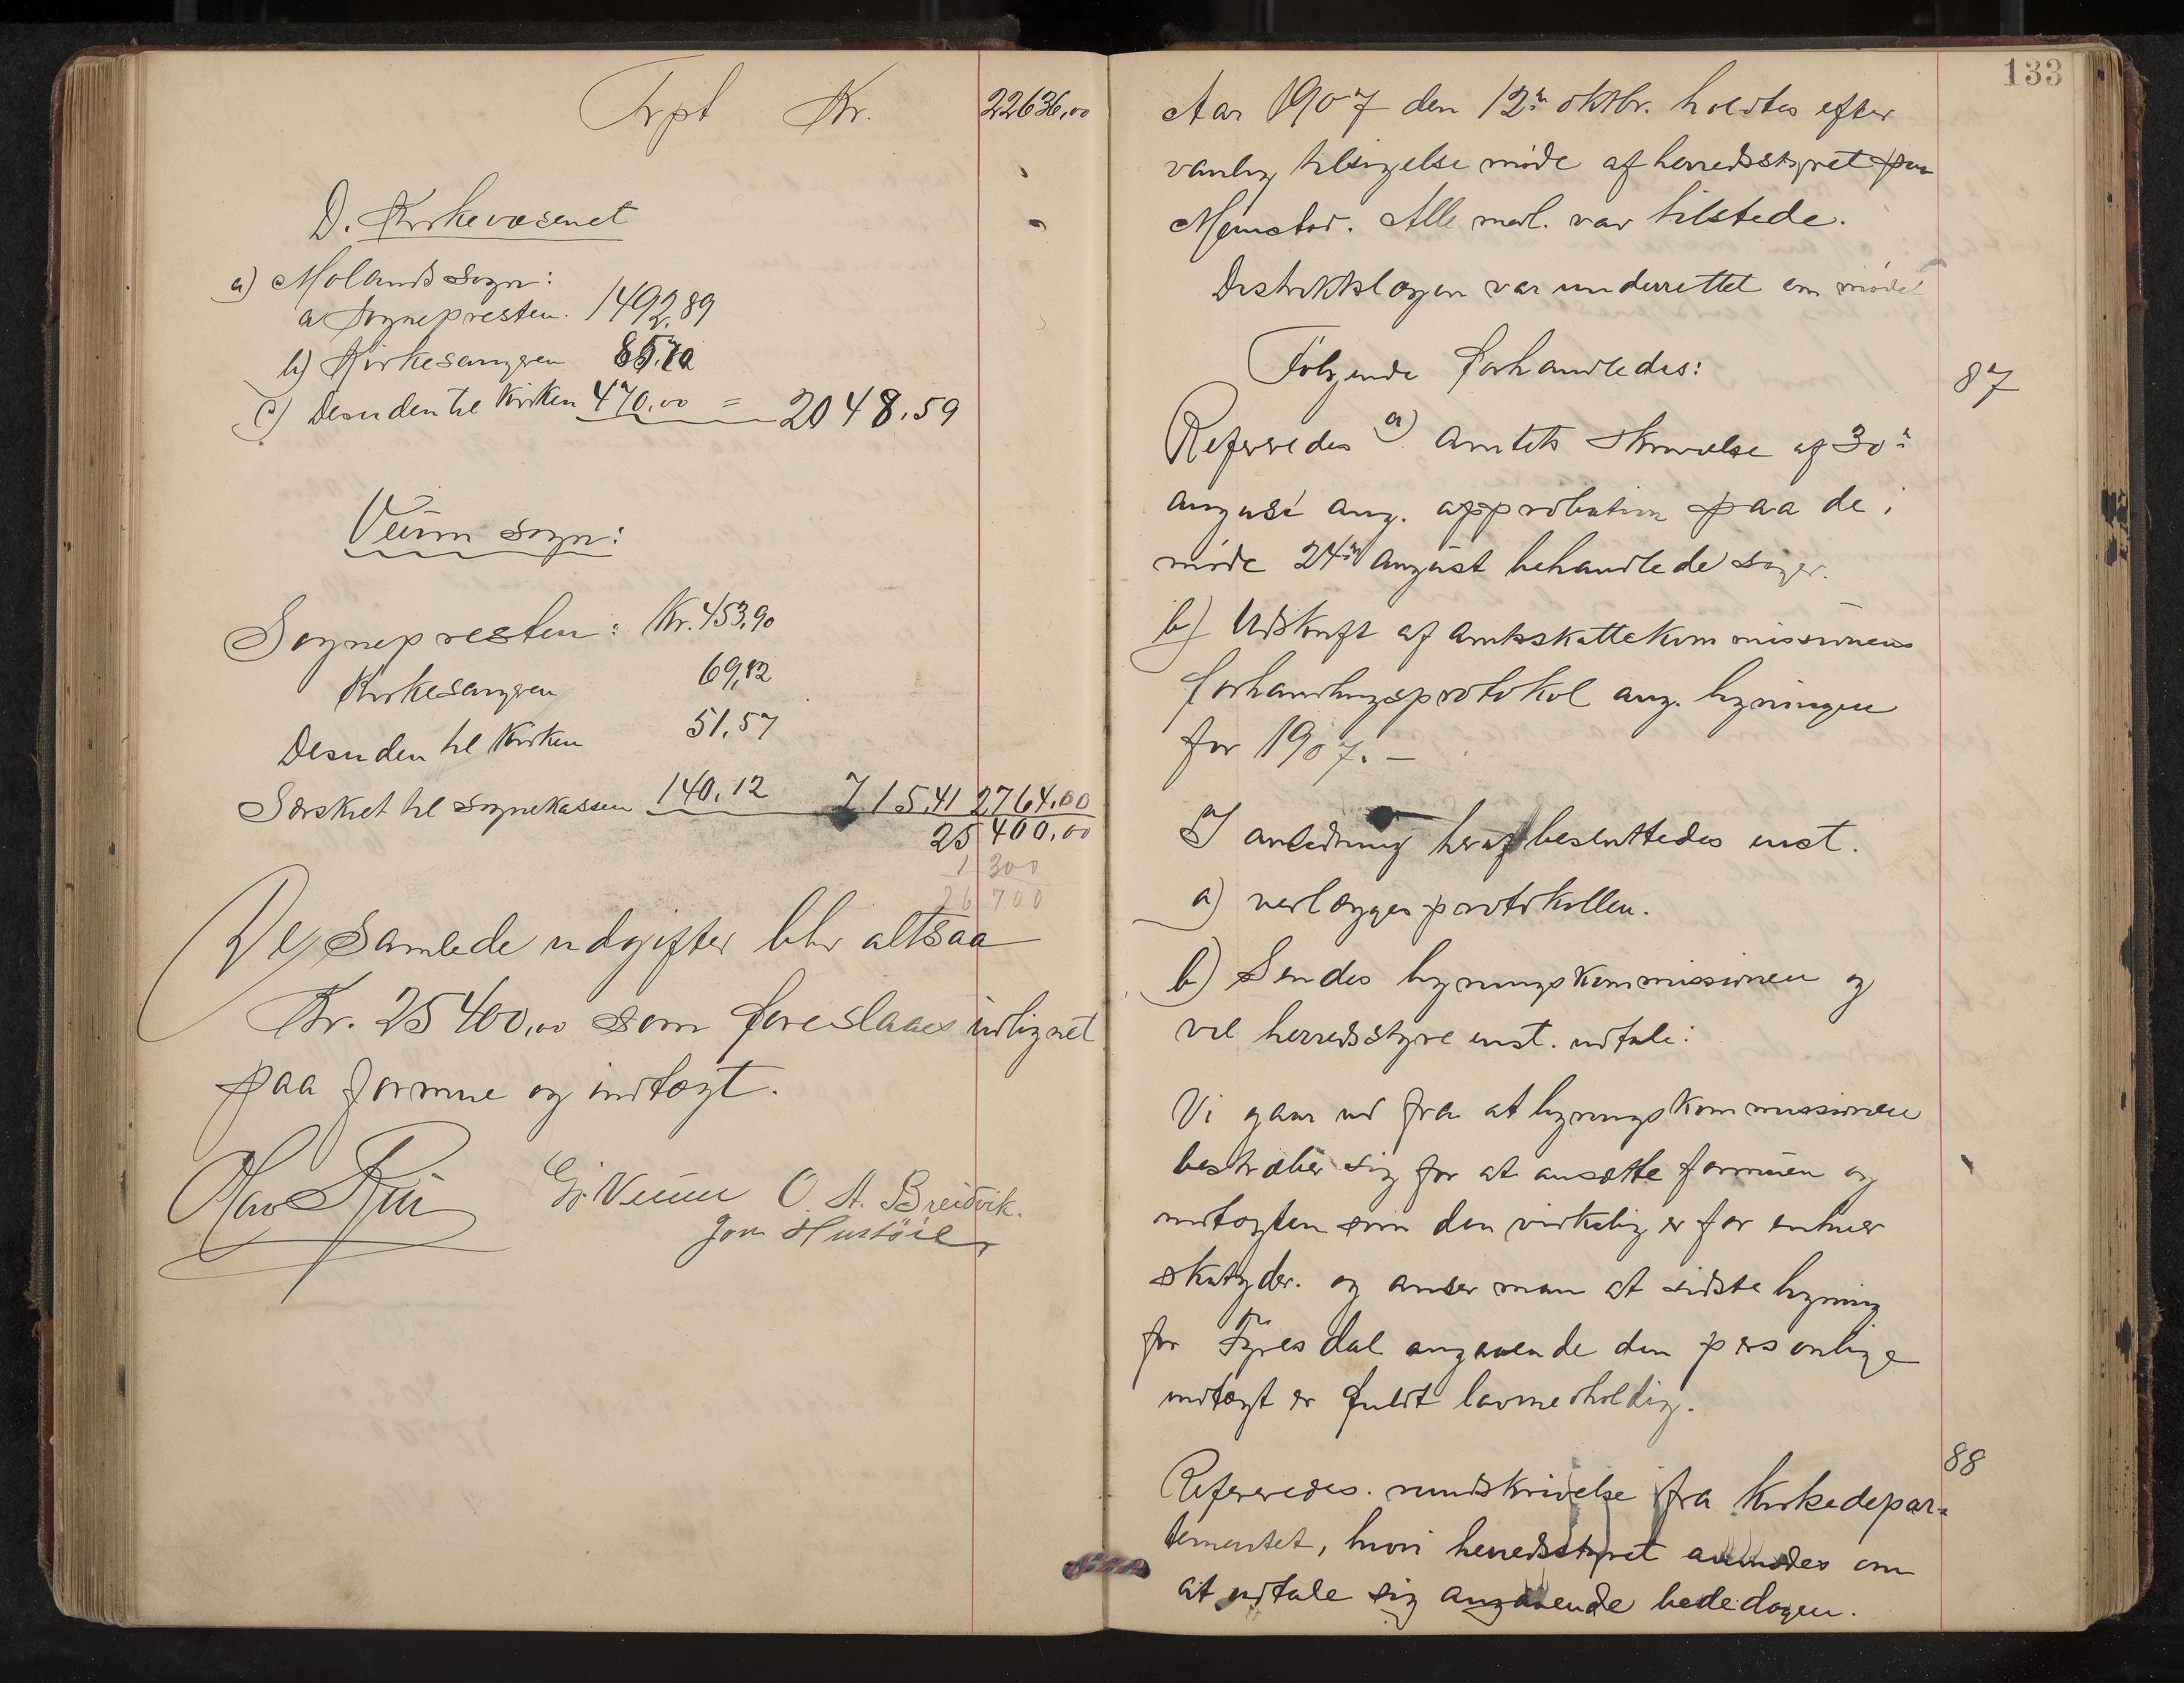 Trpt Kr. 22636,00
D. Kirkevæsenet
a) Molands Sogn:
a Sognepresten. 1492,89
b) Kirkesangeren 85,70
c) Desuden til Kirken 470,00 = 2048,59
Veum sogn:
Sognepresten: Kr. 453,90
Kirkesangeren 69,82
Desuden til Kirken 51,57
Særskit til Sognekassen 140,12 715,41 2764,00
25 400,00
1 300
26 700
De samlede udgifter blir altsaa
Kr. 25400,00 som foreslaaes udlignet
paa formue og indtægt.
Olav Rui G. Veum O. A. Breidvik.
Jon Hustöil
133
Aar 1907 den 12te oktbr. holdtes efter
vanlig tilsigelse möde af herredsstyret paa
Momstad. Alle medl. var tilstede.
Distriktslægen var underrettet om mödet
Fölgende forhandledes:
87
Refereredes a) Amtets skrivelse af 30te
august ang. approbation paa de i
möde 24de august behandlede sager.
b) Udskrift af Amtsskattekommissionens
forhandlingsprotokol ang. ligningen
for 1907. –
I anledning heraf besluttedes enst.
a) vedlægges protokollen.
b) Sendes ligningskommissionen og
vil herredsstyre enst. udtale:
Vi gaar ud fra at ligningskommissionen
bestræber sig for at ansætte formuen og
indtægten som den virkelig er for enhver
skatyder. og anser man at sidste ligning
for Fyresdal angaaende den personlige
indtægt er fuldt lovmedholdig.
88
Refereredes. rundskrivelse fra Kirkedepar-
tementet, hvori herredsstyret anmodes om
at udtale sig angaaende bededagen.